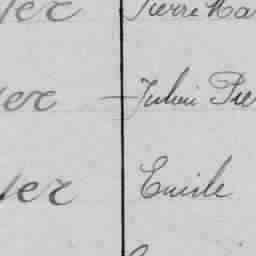 er Pierre Ma
er Julien Pie
er Emile